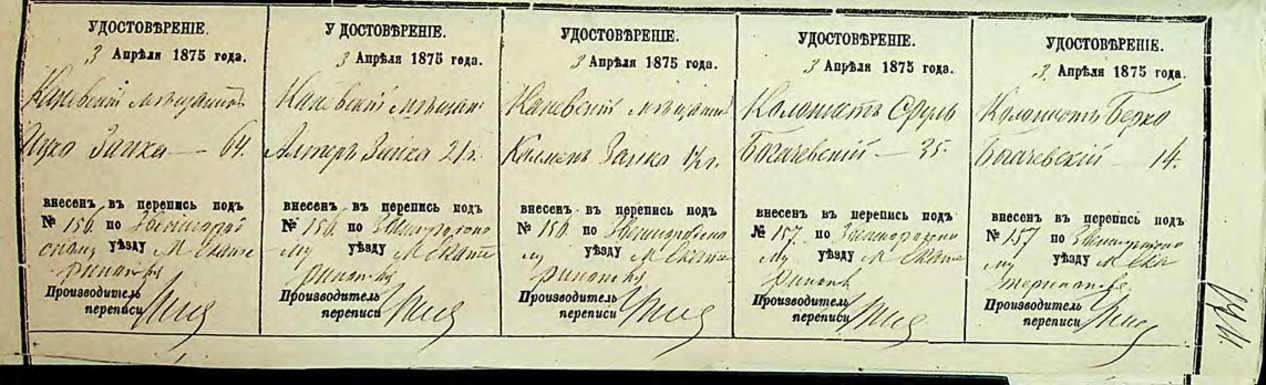 УДОСТОВѢРЕНІЕ.
3 Апрѣля 1875 года.
Каневскій мѣщанинъ
Ицко Заика — 64.
внесенъ въ перепись подъ
№ 156. по Звенигород
скому уѣзду М Екате
ринополь
Производитель
переписи
У ДОСТОВѢРЕНІЕ.
3 Апрѣля 1875 года.
Каневскій мѣщан:
Алтеръ Заика 21 г.
внесенъ въ перепись подъ
№ 156. по Звенигородско
му уѣзду М Екате
ринополь
Производитель
переписи
УДОСТОВѢРЕНІЕ.
3 Апрѣля 1875 года.
Каневскій мѣщанин
Калмен Заика 1½ г.
внесенъ въ перепись подъ
№ 156 по Звенигородско
му уѣзду М Екате
ринополь
Производитель
переписи
УДОСТОВѢРЕНІЕ.
3 Апрѣля 1875 года.
Колонистъ Сруль
Богачевскій — 35.
внесенъ въ перепись подъ
№ 157. по Звенигородско
му уѣзду М Екате
ринополь
Производитель
переписи
УДОСТОВѢРЕНІЕ.
3. Апрѣля 1875 года.
Колонистъ Берко
Богачевскій — 14.
внесенъ въ перепись подъ
№ 157 по Звенигородско
му уѣзду М Ека
теринополь
Производитель
переписи